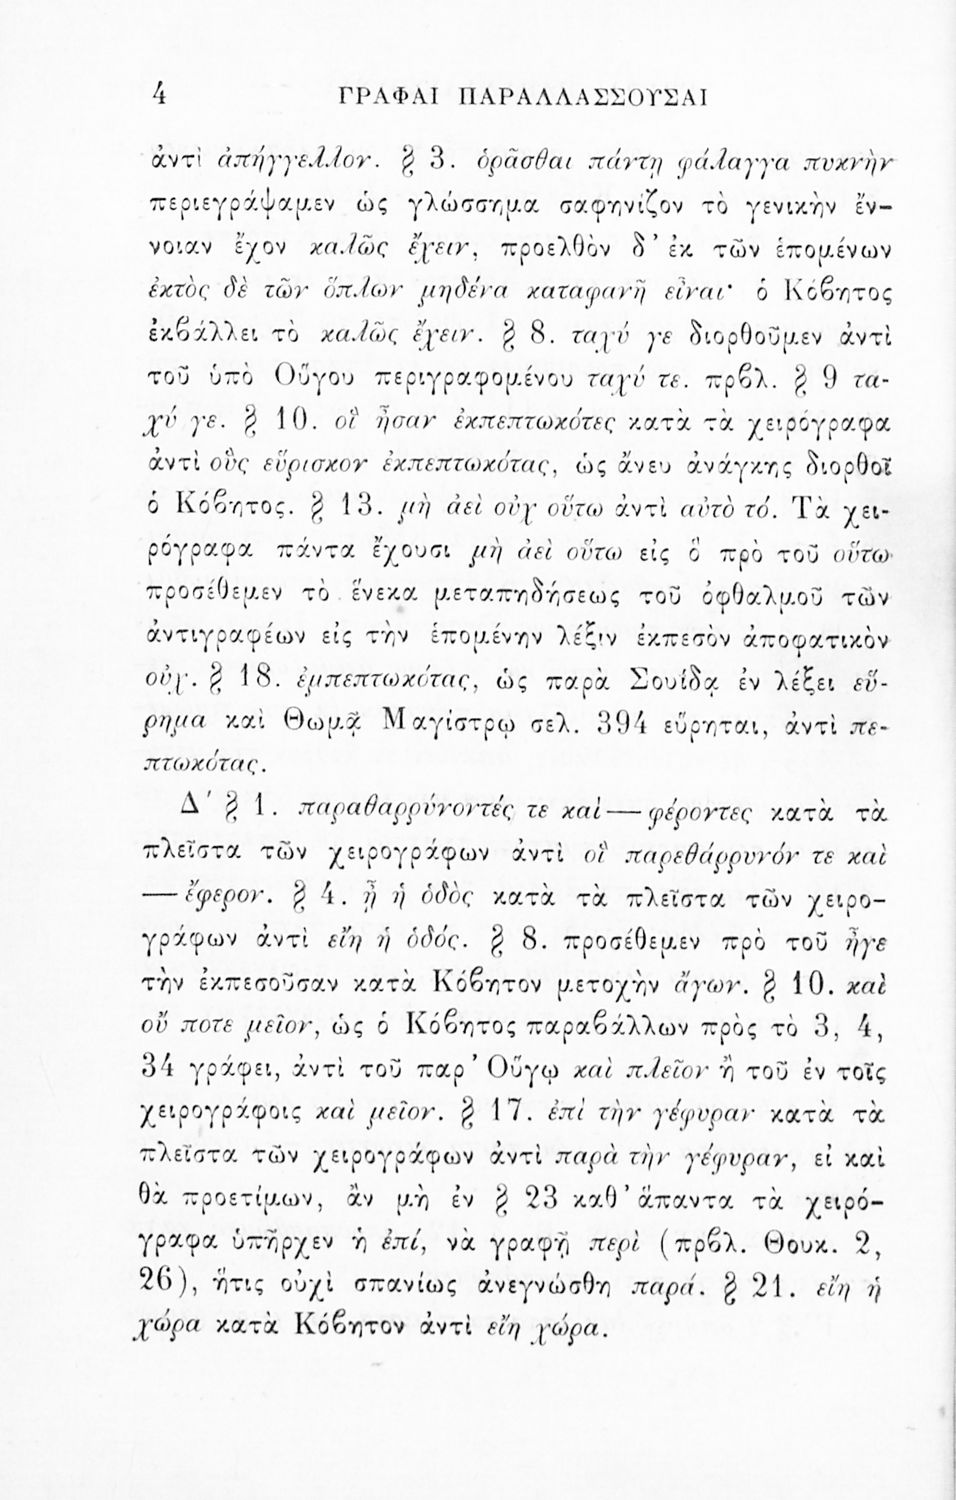 4 ΓΡΑΦΑΙ ΠΑΡΑΛΛΑΣΣΟΥΣΑΙ
ἀντὶ ἀπήγγελλον. § 3. ὁρᾶσθαι πάντῃ φάλαγγα πυκνὴν
περιεγράψαμεν ὡς γλώσσημα σαφηνίζον τὸ γενικὴν ἔν-
νοιαν ἔχον καλῶς ἔχειν, προελθὸν δ’ ἐκ τῶν ἑπομένων
ἐκτὸς δὲ τῶν ὅπλων μηδένα καταφανῆ εἶναι· ὁ Κόβητος
ἐκβάλλει τὸ καλῶς ἔχειν. § 8. ταχύ γε διορθοῦμεν ἀντὶ
τοῦ ὑπὸ Οὕγου περιγραφομένου ταχύ τε. πρβλ. § 9 τα-
χύ γε. § 10. οἳ ἦσαν ἐκπεπτωκότες κατὰ τὰ χειρόγραφα
ἀντὶ οὓς εὕρισκον ἐκπεπτωκότας, ὡς ἄνευ ἀνάγκης διορθοῖ
ὁ Κόβητος. § 13. μὴ ἀεὶ οὐχ οὕτω ἀντὶ αὐτὸ τό. Τὰ χει-
ρόγραφα πάντα ἔχουσι μὴ ἀεὶ οὕτω εἰς ὃ πρὸ τοῦ οὕτω
προσέθεμεν τὸ ἕνεκα μεταπηδήσεως τοῦ ὀφθαλμοῦ τῶν
ἀντιγραφέων εἰς τὴν ἑπομένην λέξιν ἐκπεσὸν ἀποφατικὸν
οὐχ. § 18. ἐμπεπτωκότας, ὡς παρὰ Σουίδᾳ ἐν λέξει εὕ-
ρημα καὶ Θωμᾷ Μαγίστρῳ σελ. 394 εὕρηται, ἀντὶ πε-
πτωκότας.
Δ΄ § 1. παραθαρρύνοντές τε καὶ — φέροντες κατὰ τὰ
πλεῖστα τῶν χειρογράφων ἀντὶ οἳ παρεθάρρυνόν τε καὶ
— ἔφερον. § 4. ᾗ ἡ ὁδὸς κατὰ τὰ πλεῖστα τῶν χειρο-
γράφων ἀντὶ εἴη ἡ ὁδός. § 8. προσέθεμεν πρὸ τοῦ ἦγε
τὴν ἐκπεσοῦσαν κατὰ Κόβητον μετοχὴν ἄγων. § 10. καὶ
οὔ ποτε μεῖον, ὡς ὁ Κόβητος παραβάλλων πρὸς τὸ 3, 4,
34 γράφει, ἀντὶ τοῦ παρ’ Οὕγῳ καὶ πλεῖον ἢ τοῦ ἐν τοῖς
χειρογράφοις καὶ μεῖον. § 17. ἐπὶ τὴν γέφυραν κατὰ τὰ
πλεῖστα τῶν χειρογράφων ἀντὶ παρὰ τὴν γέφυραν, εἰ καὶ
θὰ προετίμων, ἂν μὴ ἐν § 23 καθ’ ἅπαντα τὰ χειρό-
γραφα ὑπῆρχεν ἡ ἐπί, νὰ γραφῇ περὶ (πρβλ. Θουκ. 2,
26), ἥτις οὐχὶ σπανίως ἀνεγνώσθη παρά. § 21. εἴη ἡ
χώρα κατὰ Κόβητον ἀντὶ εἴη χώρα.